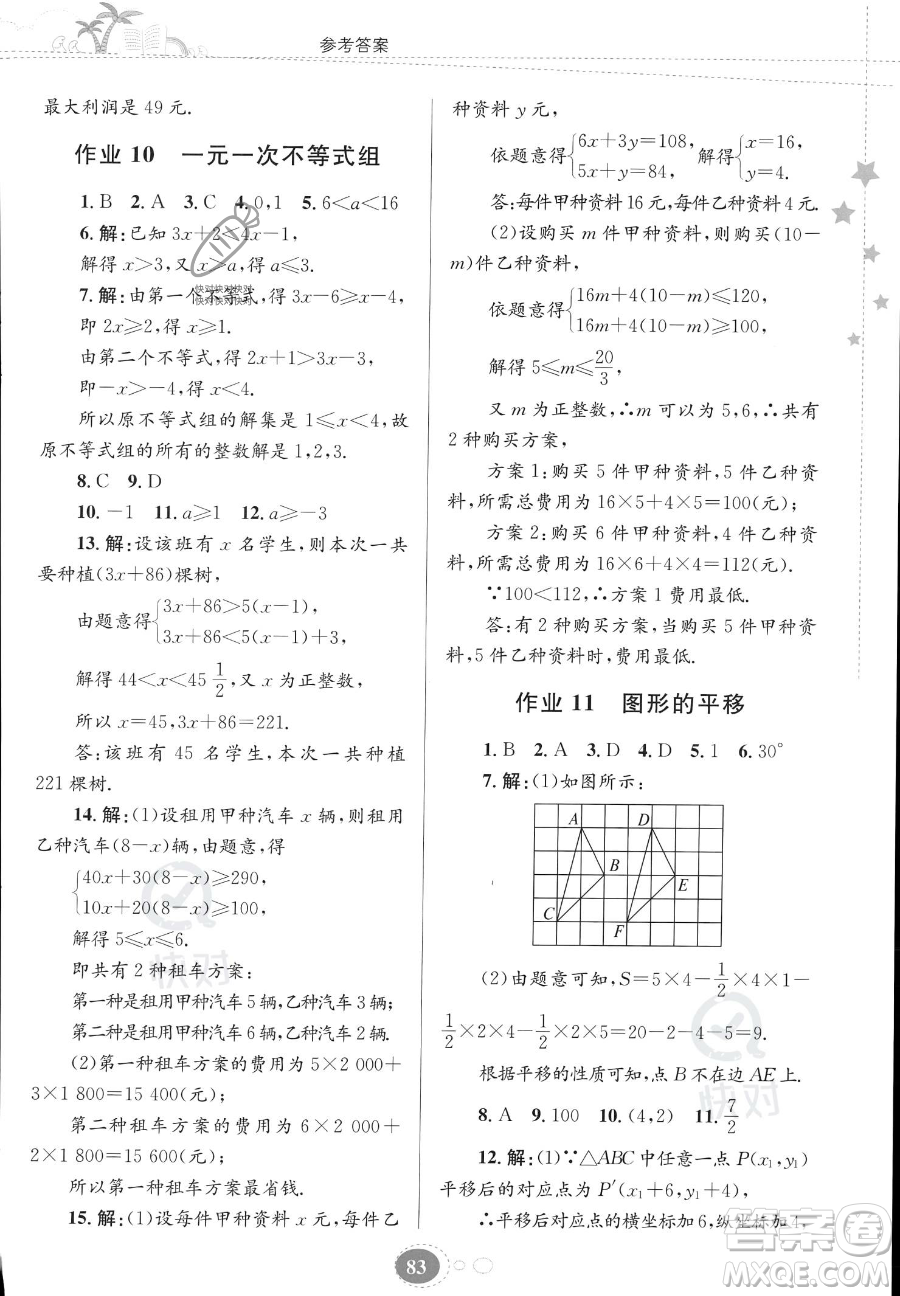 参考答案
最大利润是 49 元.
作业 10 一元一次不等式组
1. B 2. A 3. C 4. 0,1 5. 6<a<16
6. 解:已知 3x+2<4x-1,
解得 x>3,又 x≥a,得 a≤3.
7. 解:由第一个不等式,得 3x-6≥x-4,
即 2x≥2,得 x≥1.
由第二个不等式,得 2x+1>3x-3,
即-x>-4,得 x<4.
所以原不等式组的解集是 1≤x<4,故
原不等式组的所有的整数解是 1,2,3.
8. C 9. D
10. -1 11. a≥1 12. a≥-3
13. 解:设该班有 x 名学生,则本次一共
要种植(3x+86)棵树,
由题意得{3x+86>5(x-1),
3x+86<5(x-1)+3,
解得 44<x<45 1/2,又 x 为正整数,
所以 x=45,3x+86=221.
答:该班有 45 名学生,本次一共种植
221 棵树.
14. 解:(1)设租用甲种汽车 x 辆,则租用
乙种汽车(8-x)辆,由题意,得
{40x+30(8-x)≥290,
10x+20(8-x)≥100,
解得 5≤x≤6.
即共有 2 种租车方案:
第一种是租用甲种汽车 5 辆,乙种汽车 3 辆;
第二种是租用甲种汽车 6 辆,乙种汽车 2 辆.
(2)第一种租车方案的费用为 5×2 000+
3×1 800=15 400(元);
第二种租车方案的费用为 6×2 000+
2×1 800=15 600(元).
所以第一种租车方案最省钱.
15. 解:(1)设每件甲种资料 x 元,每件乙
种资料 y 元,
依题意得{6x+3y=108, 解得{x=16,
5x+y=84, y=4.
答:每件甲种资料 16 元,每件乙种资料 4 元.
(2)设购买 m 件甲种资料,则购买(10-
m)件乙种资料,
依题意得{16m+4(10-m)≤120,
16m+4(10-m)≥100,
解得 5≤m≤20/3,
又 m 为正整数,∴m 可以为 5,6,∴共有
2 种购买方案,
方案 1:购买 5 件甲种资料,5 件乙种资
料,所需总费用为 16×5+4×5=100(元);
方案 2:购买 6 件甲种资料,4 件乙种资
料,所需总费用为 16×6+4×4=112(元).
∵100<112,∴方案 1 费用最低.
答:有 2 种购买方案,当购买 5 件甲种资
料,5 件乙种资料时,费用最低.
作业 11 图形的平移
1. B 2. A 3. D 4. D 5. 1 6. 30°
7. 解:(1)如图所示:
A D
B E
C F
(2)由题意可知,S=5×4-1/2×4×1-
1/2×2×4-1/2×2×5=20-2-4-5=9.
根据平移的性质可知,点 B 不在边 AE 上.
8. A 9. 100 10. (4,2) 11. 7/2
12. 解:(1)∵△ABC 中任意一点 P(x₁,y₁)
平移后的对应点为 P′(x₁+6,y₁+4),
∴平移后对应点的横坐标加 6,纵坐标加 4,
83
快对快对快对
快对快对快对
快对
快对
答案圈
MXQE.COM